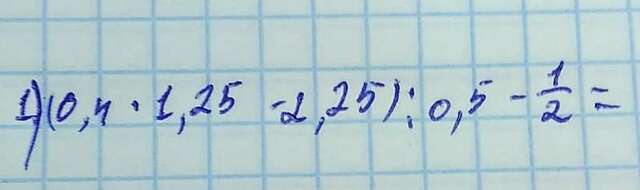 1) (0,4 · 1,25 - 2,25) : 0,5 - 1/2 =